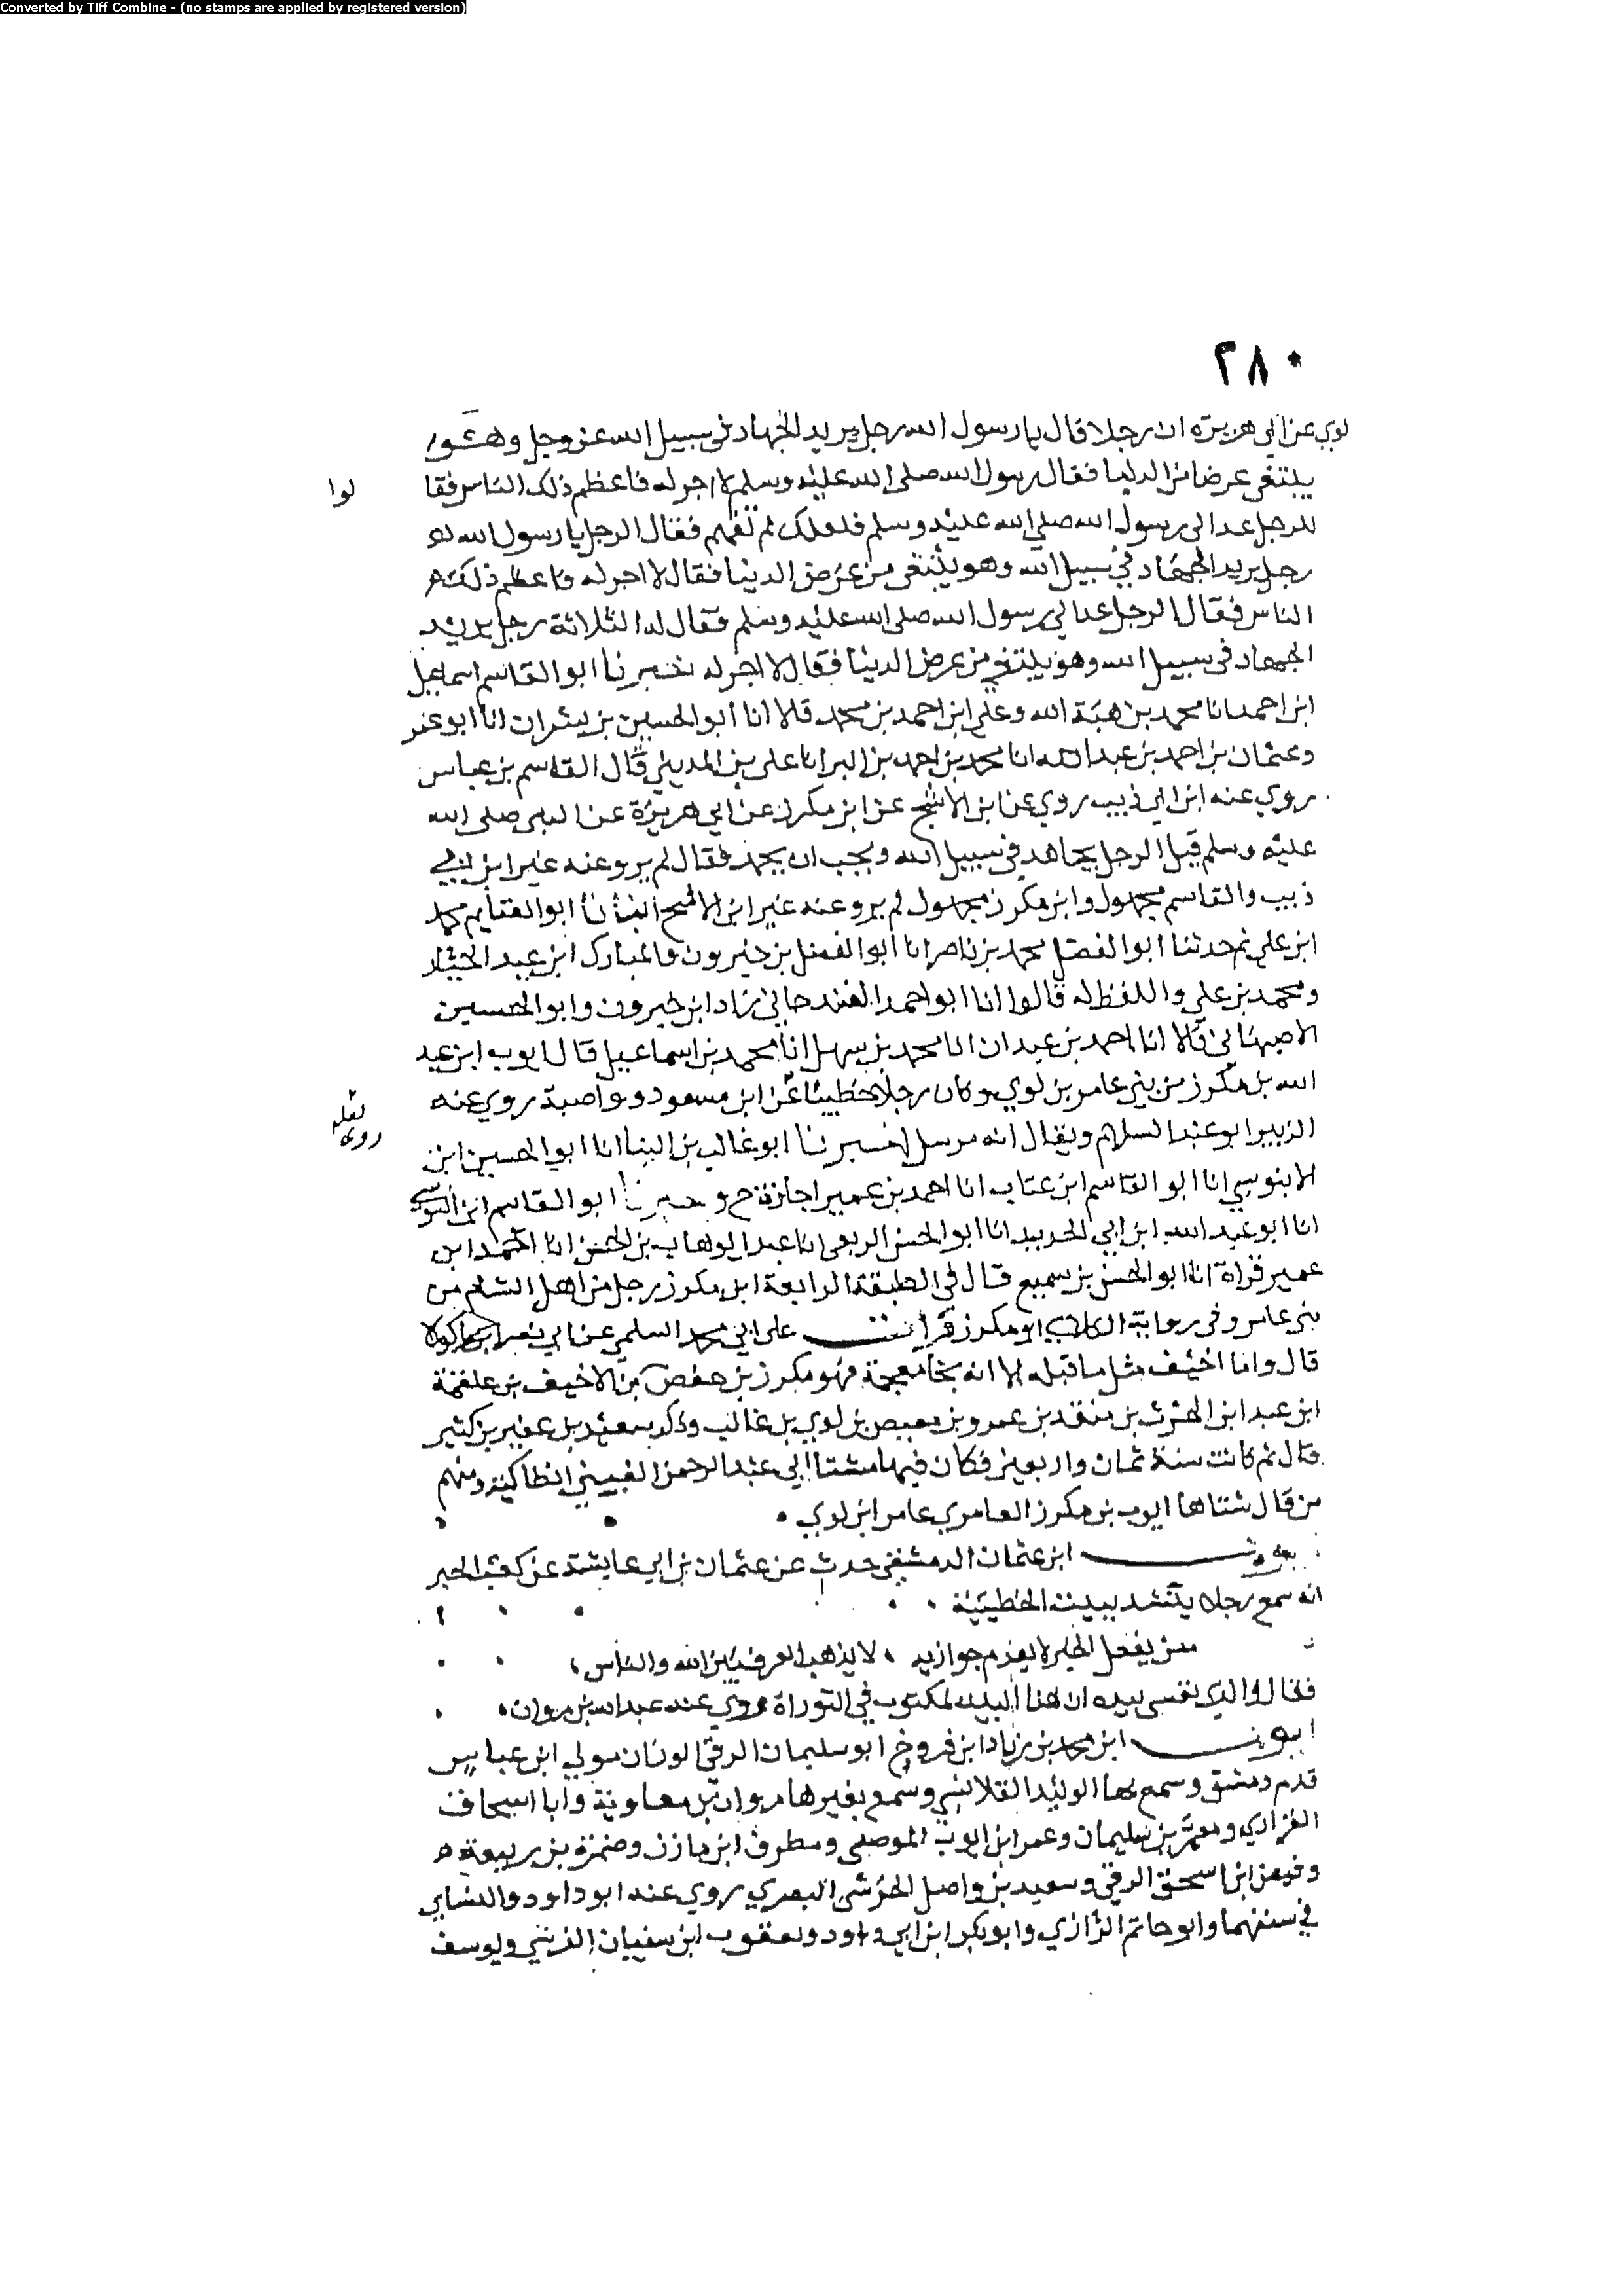 Converted by Tiff Combine - (no stamps are applied by registered version)
٢٨٠
لوي عن ابي هريرة ان رجلا قال يا رسول الله رجل يريد الجهاد في سبيل الله عز وجل وهو
يبتغي عرضا من الدنيا فقال رسول الله صلى الله عليه وسلم لا اجر له فاعظم ذلك الناس فقا
لوا
للرجل عد الى رسول الله صلى الله عليه وسلم فلعلك لم تفهم فقال الرجل يا رسول الله
رجل يريد الجهاد في سبيل الله وهو يبتغي من عرض الدنيا فقال لا اجر له فاعظم ذلك
الناس فقال الرجل عد الى رسول الله صلى الله عليه وسلم فقال له الثلاثة رجل يريد
الجهاد في سبيل الله وهو يبتغي من عرض الدنيا فقال لا اجر له اخبرنا ابو القاسم اسماعيل
ابن احمد انا محمد بن هبة الله وعلي ابن احمد بن محمد قالا انا ابو الحسين بن بشران انا ابو عمر
وعثمان بن احمد بن عبد الله انا محمد بن احمد بن البرا نا علي بن المديني قال القاسم بن عباس
روي عنه ابن ابي ذيب روي عن ابن الاشج عن ابن مكرز عن ابي هريرة عن النبي صلى الله
عليه وسلم قيل الرجل يجاهد في سبيل الله ويحب ان يحمد فقال لم يرو عنه غير ابن ابي
ذيب والقاسم مجهول وابن مكرز مجهول لم يرو عنه غير ابن الاشج انبانا ابو الغنايم محمد
ابن علي ثم حدثنا ابو الفضل محمد بن ناصر انا ابو الفضل بن خيرون والمبارك ابن عبد الجبار
ومحمد بن علي واللفظ له قالوا انا ابو احمد الغندجاني زاد ابن خيرون وابو الحسين
الاصبهاني قالا انا احمد بن عبدان انا محمد بن سهل انا محمد بن اسماعيل قال ايوب ابن عبد
الله بن مكرز من بني عامر بن لوي وكان رجلا خطيبا عن ابن مسعود ووابصة روي عنه
لعله
روى
الزبير ابو عبد السلام ويقال انه مرسل اخبرنا ابو غالب بن البنا انا ابو الحسين ابن
الابنوسي انا ابو القاسم ابن عتاب انا احمد بن عمير اجازة ح و اخبرنا ابو القاسم ابن السوسي
انا ابو عبد الله ابن ابي الحديد انا ابو الحسن الربعي انا عبد الوهاب بن الحسن انا احمد ابن
عمير قراة انا ابو الحسن بن سميع قال في الطبقة الرابعة ابن مكرز رجل من اهل الشام من
بني عامر وفي رواية الكلابي ابو مكرز قرات على ابي محمد السلمي عن ابي نصر ابن ماكولا
قال واما اخيف مثل ما قبله الا انه بخا معجمة فهو مكرز بن حفص بن الاخيف بن علقمة
ابن عبد ابن الحرث بن منقذ بن عمرو بن بغيص بن لوي بن غالب وذكر سعيد بن عفير بن كثير
قال ثم كانت سنة ثمان واربعين فكان فيها مشتا ابي عبد الرحمن القيني انطاكية ومنهم
من قال شتاها ايوب بن مكرز العامري عامر ابن لوي
ابن عثمان الدمشقي حدث عن عثمان بن ابي عايشة عن كعب الحبر
انه سمع رجلا ينشد ببيت الحطيئة
من يفعل الخير لا يعدم جوازيه ، لا يذهب العرف بين الله والناس ،
فقال والذي نفسي بيده ان هذا البيت لمكتوب في التوراة روي عنه عبد الله بن مروان
ايوب ابن محمد بن زياد ابن فروخ ابو سليمان الرقي الوزان مولى ابن عباس
قدم دمشق وسمع بها الوليد القلانسي وسمع بغيرها مروان بن معاوية وابا اسحاق
الفزاري ومعمر بن سليمان وعمر ابن ايوب الموصلي ومطرف ابن مازن وضمرة بن ربيعة
وفيض ابن اسحق الرقي وسعيد بن واصل الحرشي البصري روي عنه ابو داود والنساي
في سننهما وابو حاتم الرازي وابو بكر ابن ابي داود ويعقوب ابن سفيان ويوسف